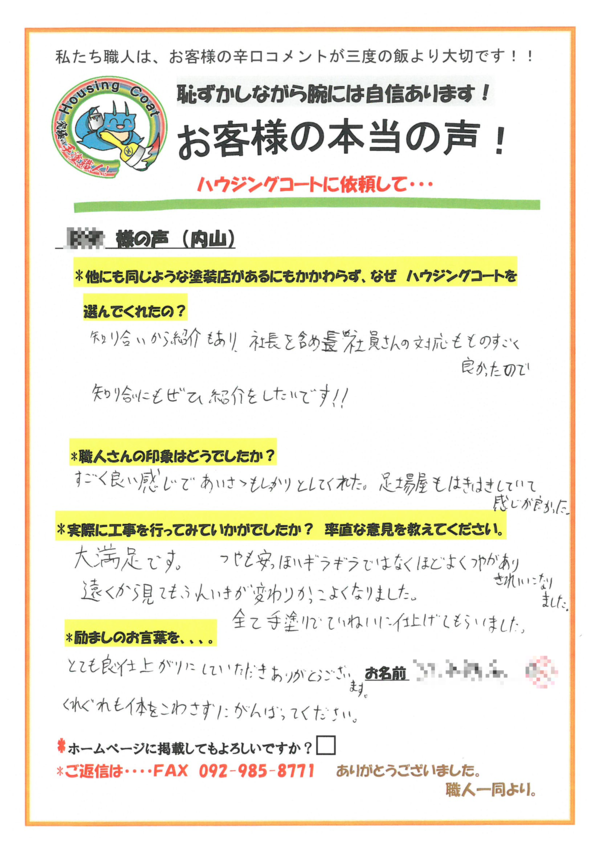 私たち職人は、お客様の辛口コメントが三度の飯より大切です！！
Housing Coat
恥ずかしながら腕には自信あります！
お客様の本当の声！
ハウジングコートに依頼して・・・
様の声（内山）
*他にも同じような塗装店があるにもかかわらず、なぜ ハウジングコートを
選んでくれたの？
知り合いから紹介もあり、社長を含め 社員さんの対応もものすごく
良かったので
知り合いにもぜひ、紹介をしたいです!!
*職人さんの印象はどうでしたか？
すごく良い感じであいさつもしっかりとしてくれた。足場屋もはきはきしていて
感じが良かった。
*実際に工事を行ってみていかがでしたか？ 率直な意見を教えてください。
大満足です。 つやも安っぽいギラギラではなくほどよくつやがあり
きれいになり
ました。
遠くから見てもふんいきが変わりかっこよくなりました。
全て手塗りでていねいに仕上げてもらいました。
*励ましのお言葉を、、、。
とても良い仕上がりにしていただきありがとうござい
ます。
お名前
くれぐれも体をこわさずにがんばってください。
*ホームページに掲載してもよろしいですか？□
*ご返信は‥‥FAX 092-985-8771 ありがとうございました。
職人一同より。